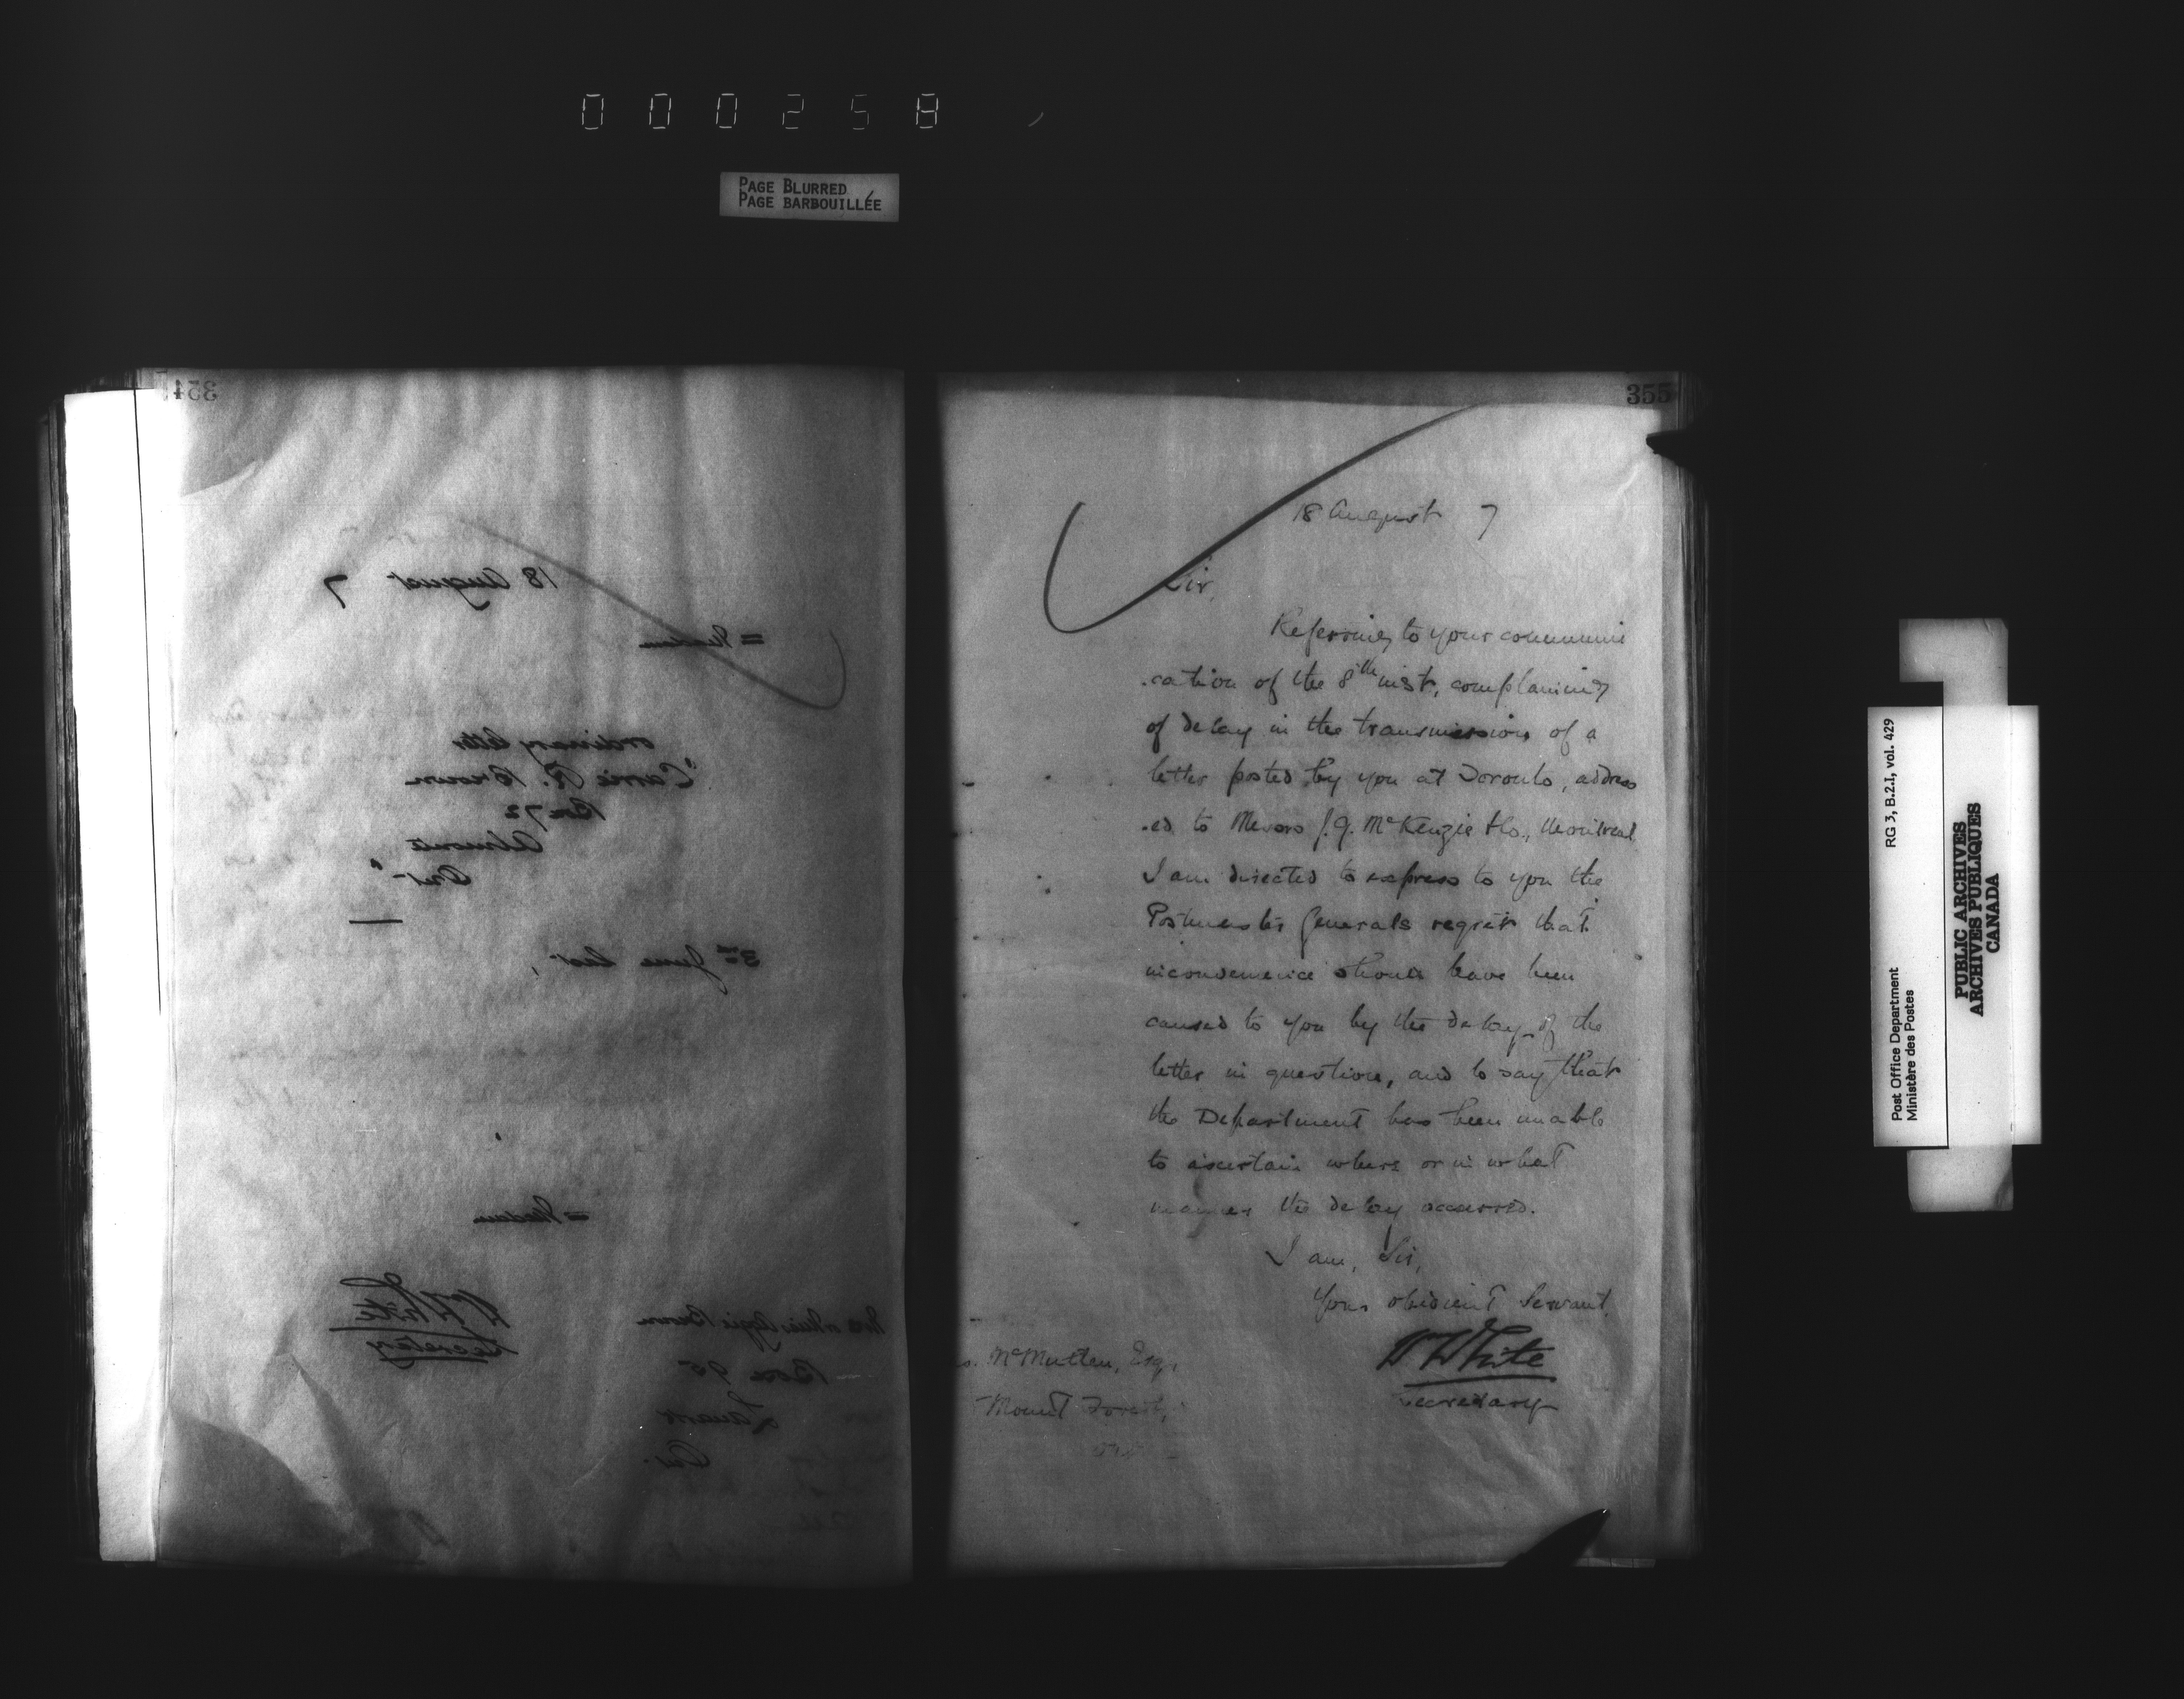 000258
PAGE BLURRED
PAGE BARBOUILLÉE
354
18 August 7
= Madam
ordinary letter
"Carrie R. Brown
Box 72
Almonte
Ont"
3rd June last,
= Madam
W White
Secretary
Lizzie Brown
Box 95
Lanark
Ont.
355
18 August 7
Sir,
Referring to your communi
.cation of the 8th inst, complaining
of delay in the transmission of a
letter posted by you at Toronto, address
.ed to Messrs J. G. McKenzie & Co., Montreal
I am directed to express to you the
Postmaster Generals regret that
inconvenience should have been
caused to you by the delay of the
letter in question, and to say that
the Department has been unable
to ascertain where or in what
manner the delay occurred.
I am, Sir,
Your obedient Servant,
W White
Secretary
McMullen, Esq,
Mount Forest,
Ont
Post Office Department
Ministère des Postes
RG 3, B.2.I, vol. 429
PUBLIC ARCHIVES
ARCHIVES PUBLIQUES
CANADA